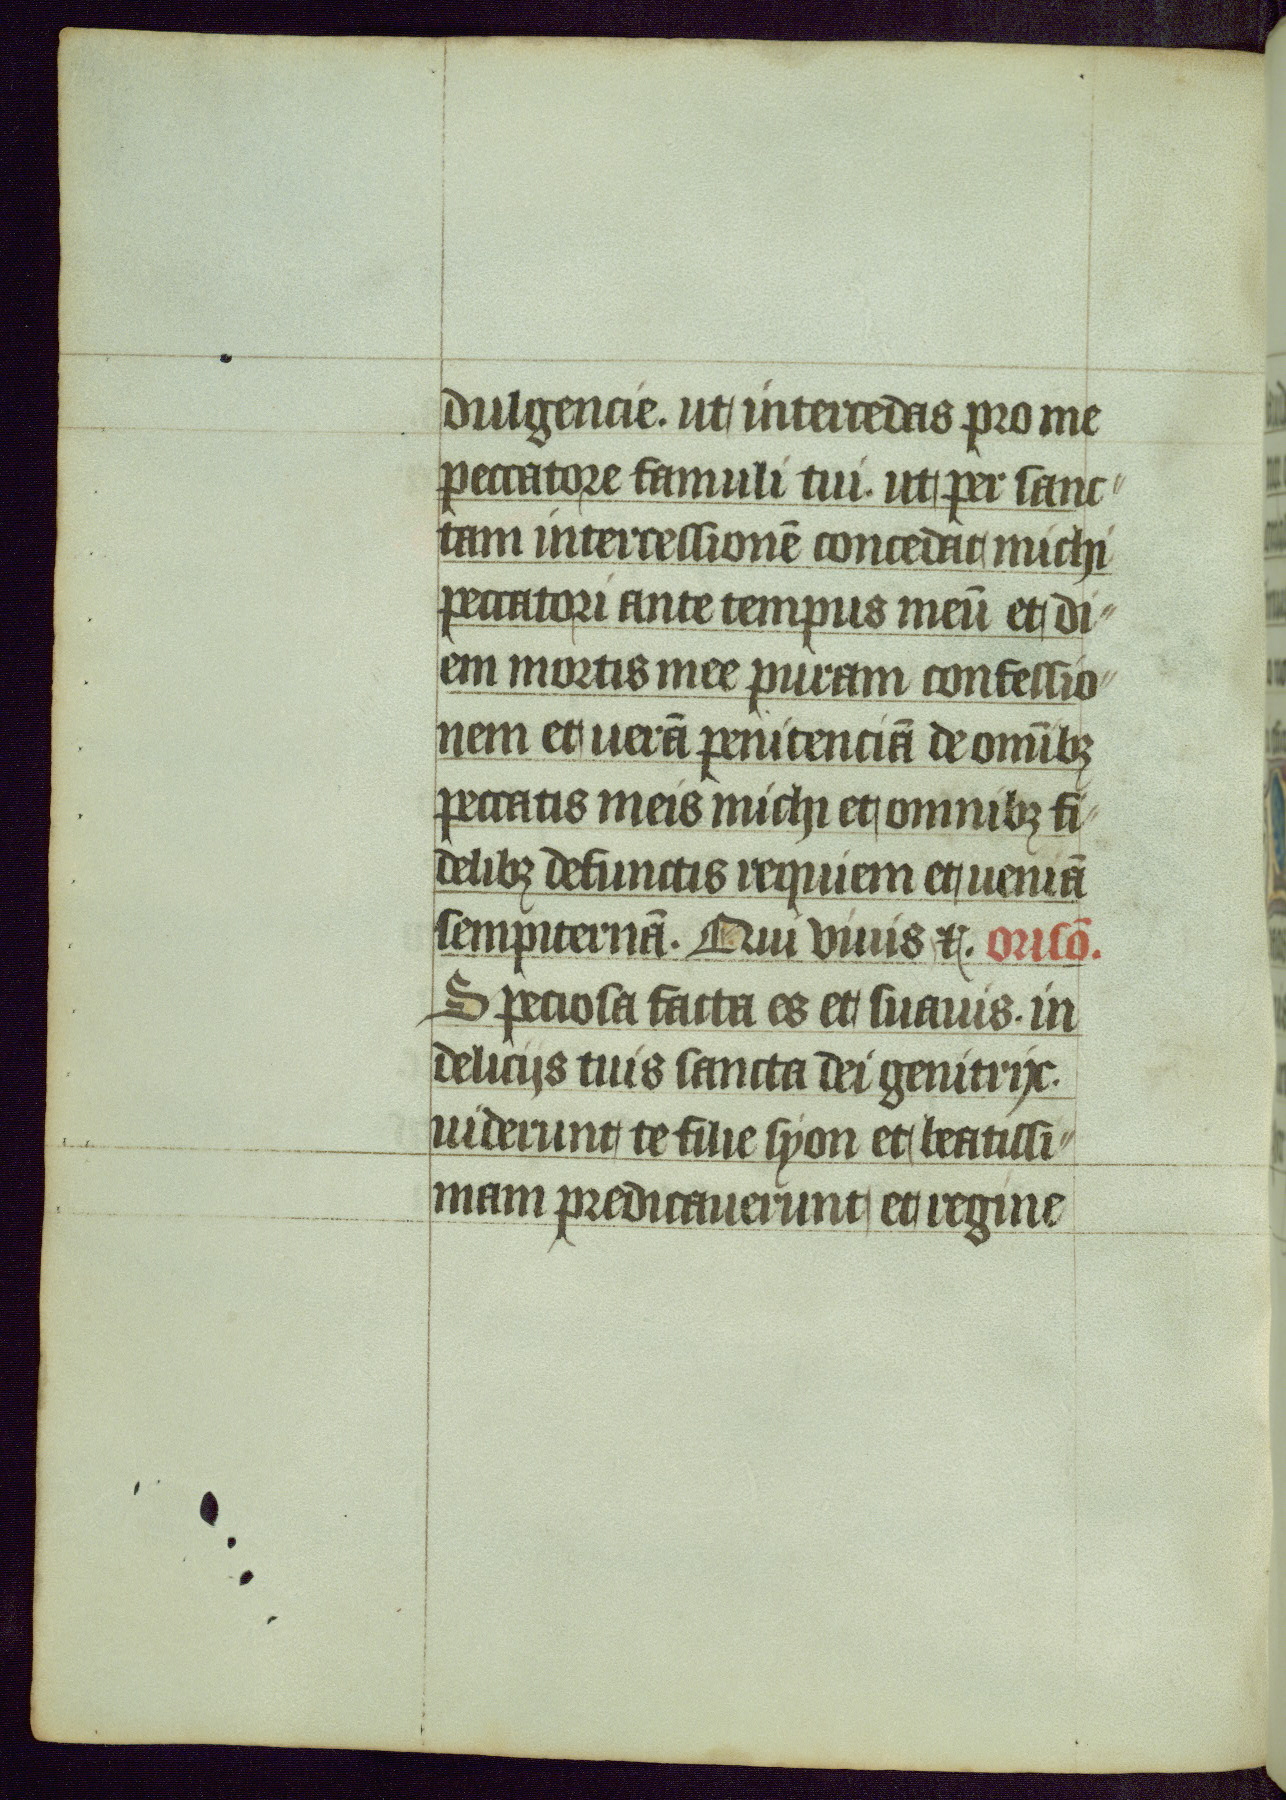 dulgencie. ut intercedas pro me
peccatore famuli tui. ut per sanc-
tam intercessionē concedat michi
peccatori ante tempus meū et di-
em mortis mee puram confessio-
nem et uerā penitenciā de omībꝫ
peccatis meis michi et omnibꝫ fi-
delibꝫ defunctis requiem et ueniā
sempiternā. Qui viuis ⁊c̄. orisō.
Speciosa facta es et suauis. in
delicijs tuis sancta dei genitrix.
uiderunt te filie syon et beatissi-
mam predicauerunt et regine